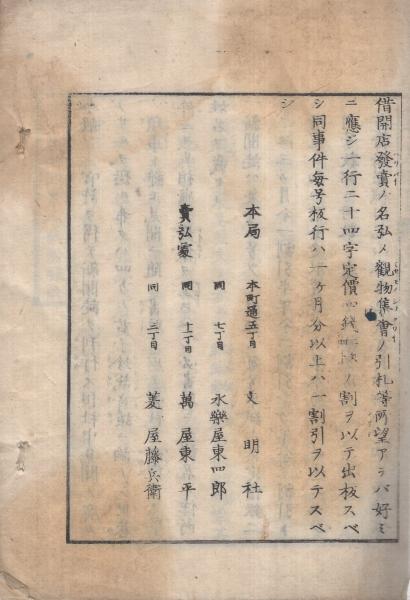 借開店發賣ノ名弘メ觀物集會ノ引札等所望アラバ好ミ
ニ應ジ一行二十四字定價四錢ノ割ヲ以テ出板スベ
シ同事件每号板行ハ一ケ月分以上ハ一割引ヲ以テスベ
シ
本局 本町通五丁目 文明社
同 七丁目 永樂屋東四郎
賣弘家 同 十一丁目 萬屋東平
同 三丁目 菱屋藤兵衛